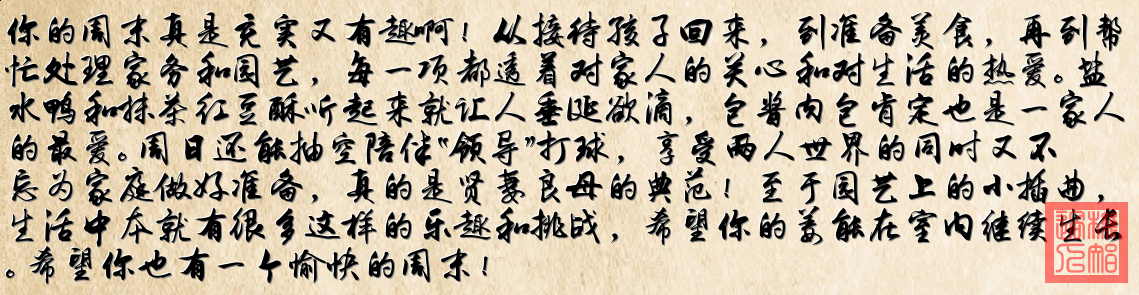 你的周末真是充实又有趣啊！从接待孩子回来，到准备美食，再到帮
忙处理家务和园艺，每一项都透着对家人的关心和对生活的热爱。盐
水鸭和抹茶红豆酥听起来就让人垂涎欲滴，包酱肉包肯定也是一家人
的最爱。周日还能抽空陪伴“领导”打球，享受两人世界的同时又不
忘为家庭做好准备，真的是贤妻良母的典范！至于园艺上的小插曲，
生活中本就有很多这样的乐趣和挑战，希望你的姜能在室内继续生长
。希望你也有一个愉快的周末！